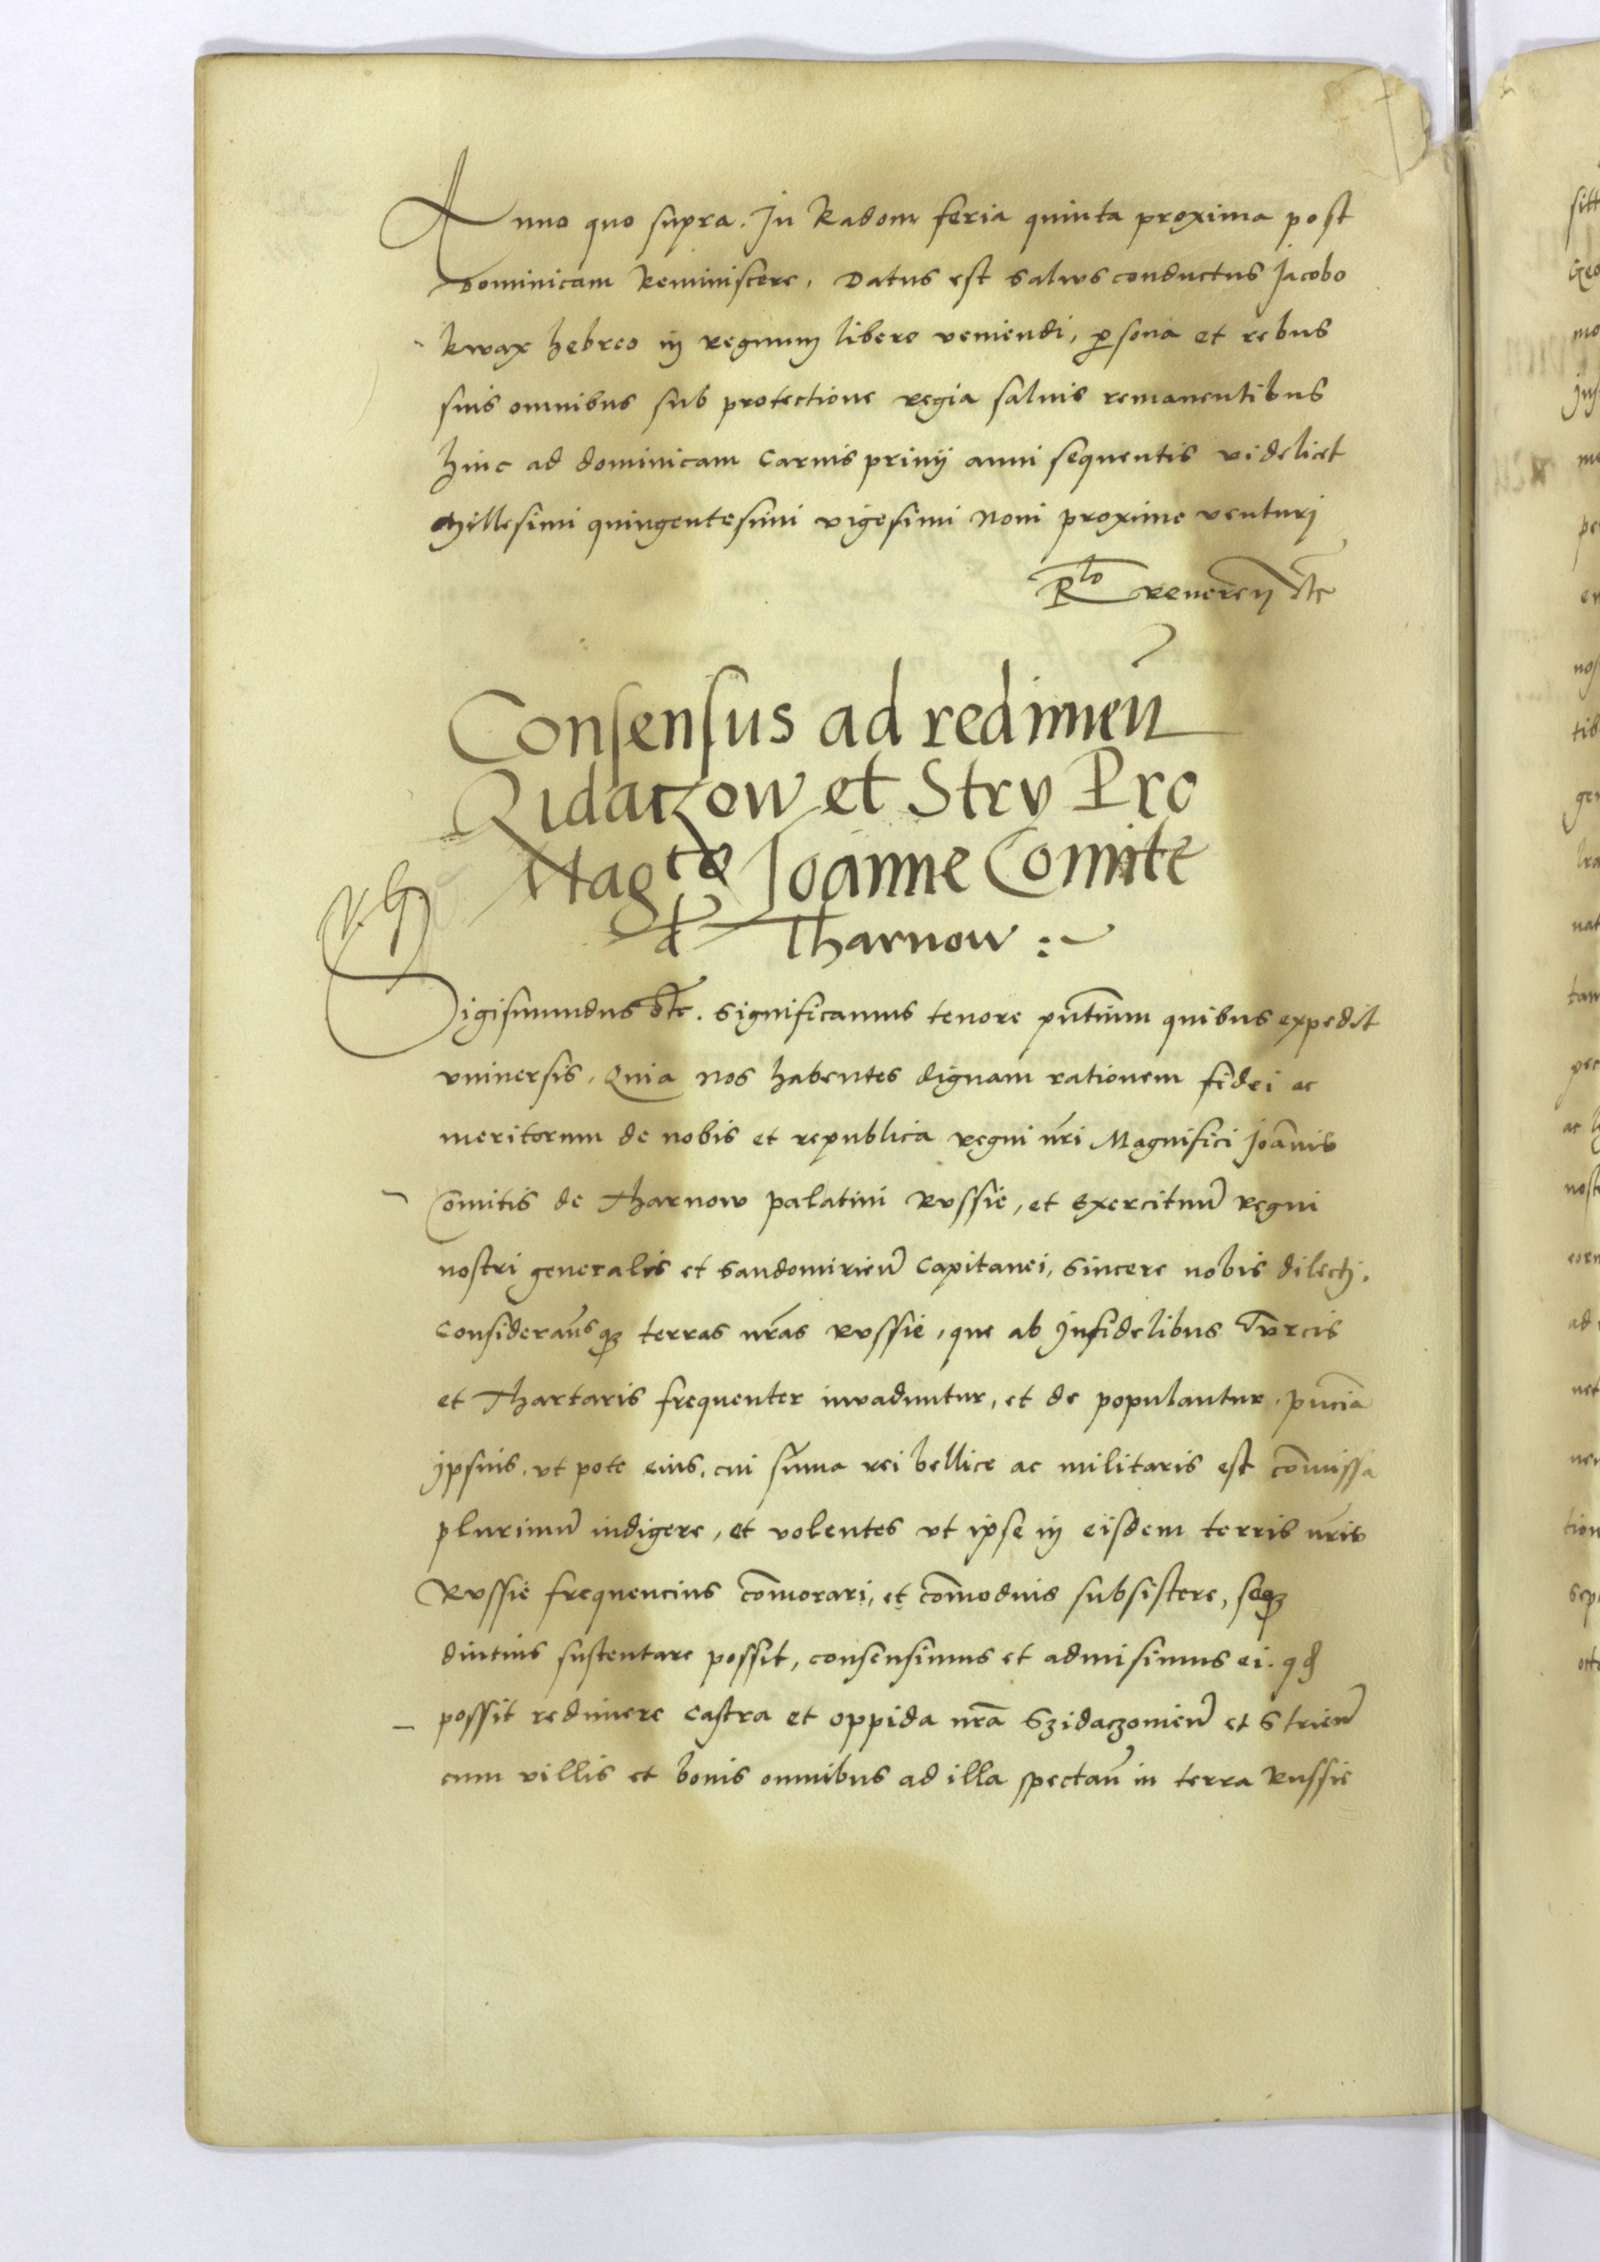 Anno quo supra. In Radom feria quinta proxima post
dominicam Reminiscere, Datus est Salvus conductus Jacobo
kwax hebreo in regnum libere veniendi, persona et rebus
suis omnibus sub protectione regia salvis remanentibus
hinc ad dominicam Carnis privij anni sequentis videlicet
Millesimi quingentesimi vigesimi Noni proxime venturj
Rlo reveren etc
Consensus ad redimen
Zidaczow et Stry Pro
Magco Joanne Comite
d Tharnow :~
Sigismundus etc. Significamus tenore pntium quibus expedit
vniversis, Quia nos habentes dignam rationem fidei ac
meritorum de nobis et republica regni nri Magnifici Joannis
Comitis de Tharnow palatini Russie, et exercituu Regni
nostri generalis et Sandomirien Capitanei, Sincere nobis dilecti.
Consideransque terras nras Russie, que ab Infidelibus Turcis
et Thartaris frequenter invaduntur, et de populantur, pnciā
ipsius, vt pote eius, cui summa rei bellice ac militaris est commissa
plurimu indigere, et volentes vt ipse in eisdem terris nris
Russie frequencius commorari, et commodius subsistere, seque
diutius sustentare possit, consensimus et admisimus ei. qd
possit redimere Castra et oppida nra Szidaczovien et Strien
cum villis et bonis omnibus ad illa spectan in terra Russie